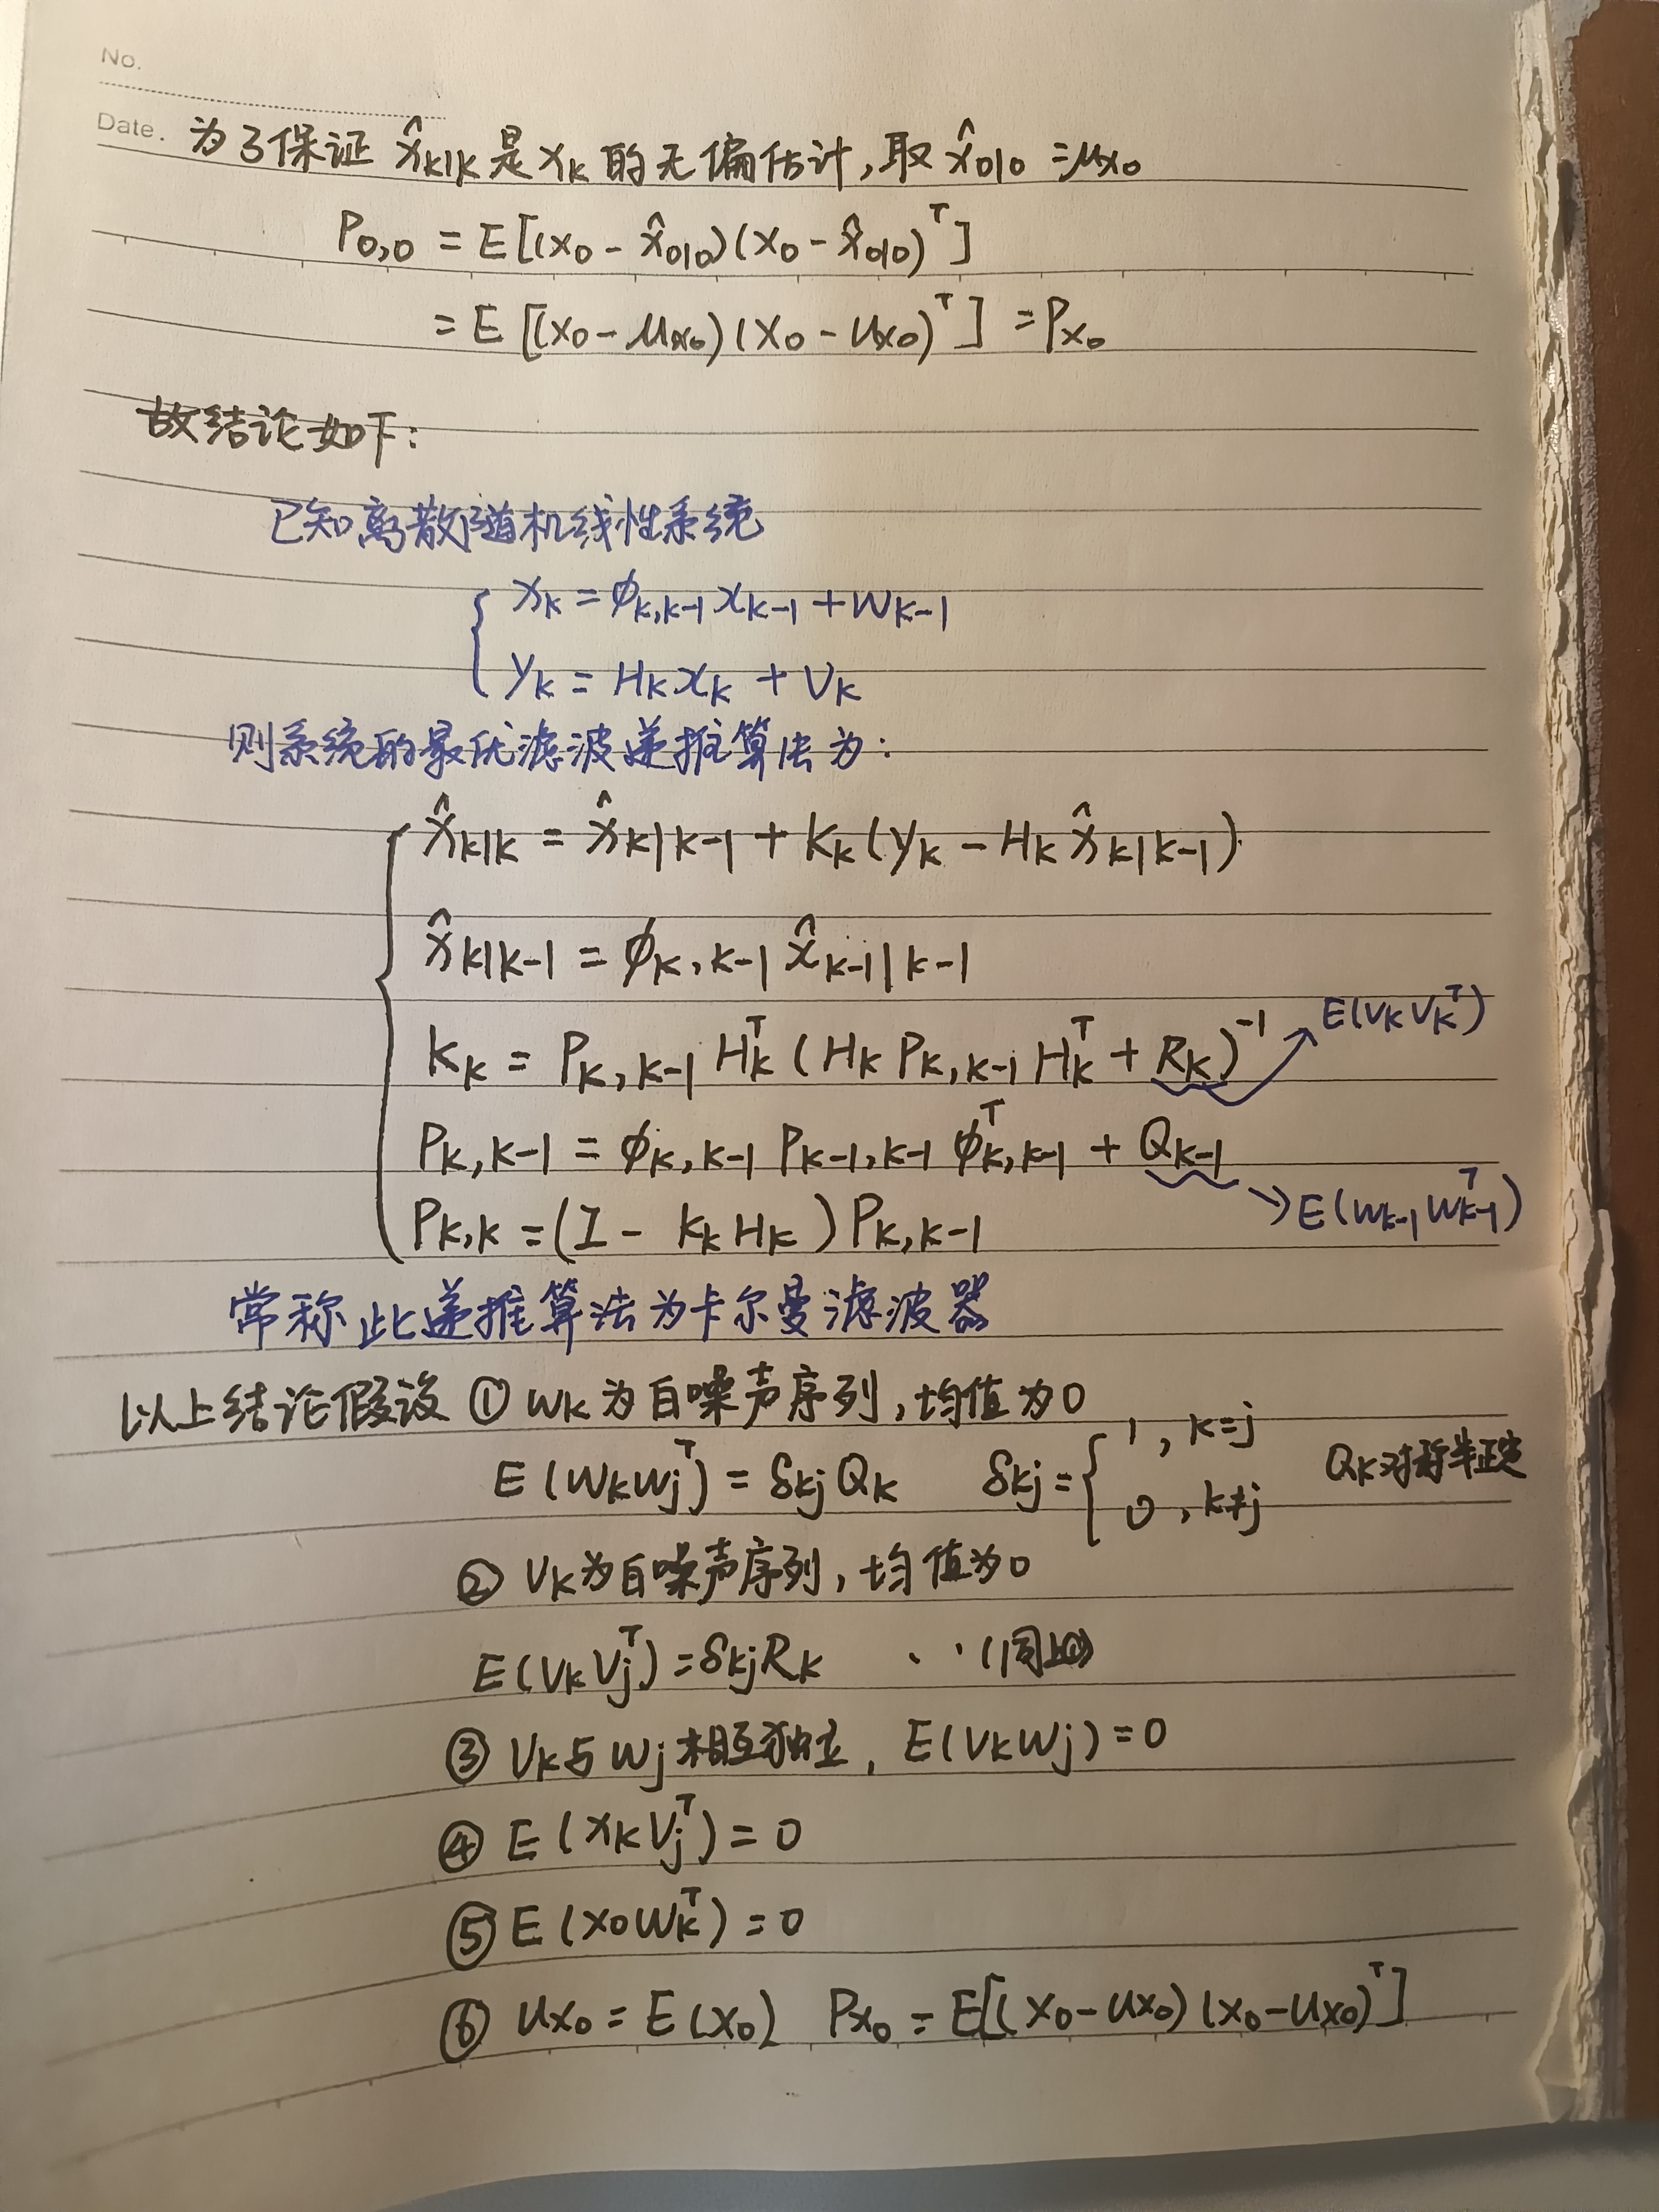 No.
Date. 为了保证 x̂k|k 是 xk 的无偏估计,取 x̂0|0 = μx0
P0,0 = E[(x0 - x̂0|0)(x0 - x̂0|0)^T]
= E[(x0 - μx0)(x0 - μx0)^T] = Px0
故结论如下:
已知离散随机线性系统
{ xk = φk,k-1 xk-1 + wk-1
yk = Hk xk + vk
则系统的最优滤波递推算法为:
{ x̂k|k = x̂k|k-1 + Kk(yk - Hk x̂k|k-1)
x̂k|k-1 = φk,k-1 x̂k-1|k-1
Kk = Pk,k-1 Hk^T (Hk Pk,k-1 Hk^T + Rk)^-1 → E(vk vk^T)
Pk,k-1 = φk,k-1 Pk-1,k-1 φk,k-1^T + Qk-1 → E(wk-1 wk-1^T)
Pk,k = (I - Kk Hk) Pk,k-1
常称此递推算法为卡尔曼滤波器
以上结论假设 ① wk 为白噪声序列,均值为0
E(wk wj^T) = δkj Qk δkj = { 1, k=j 0, k≠j Qk对称半正定
② vk为白噪声序列,均值为0
E(vk vj^T) = δkj Rk (同上①)
③ vk与wj相互独立, E(vk wj) = 0
④ E(xk vj^T) = 0
⑤ E(x0 wk^T) = 0
⑥ μx0 = E(x0) Px0 = E[(x0 - μx0)(x0 - μx0)^T]